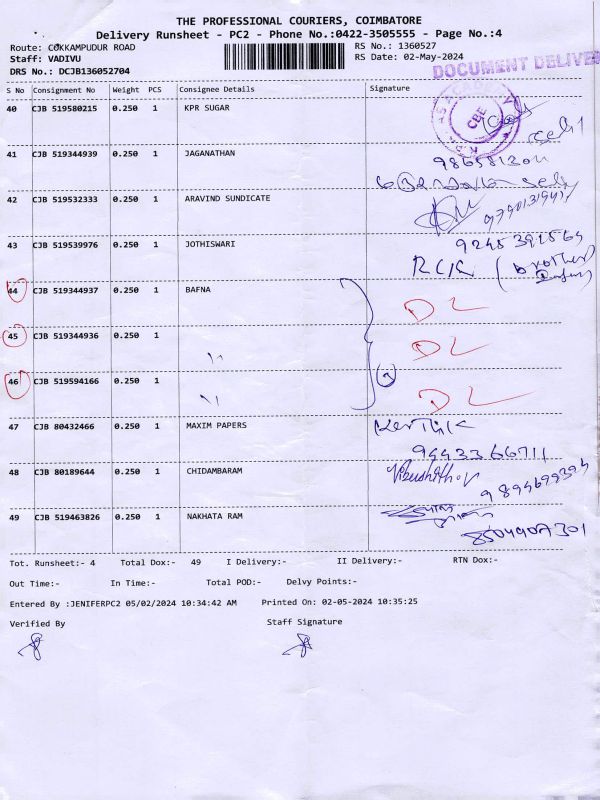 THE PROFESSIONAL COURIERS, COIMBATORE
Delivery Runsheet - PC2 - Phone No.:0422-3505555 - Page No.:4
Route: COKKAMPUDUR ROAD
Staff: VADIVU
DRS No.: DCJB136052704
RS No.: 1360527
RS Date: 02-May-2024
DOCUMENT DELIVE
S No Consignment No Weight PCS Consignee Details Signature
40 CJB 519580215 0.250 1 KPR SUGAR
CBE
41 CJB 519344939 0.250 1 JAGANATHAN
42 CJB 519532333 0.250 1 ARAVIND SUNDICATE
43 CJB 519539976 0.250 1 JOTHISWARI
(brother
44 CJB 519344937 0.250 1 BAFNA DL
45 CJB 519344936 0.250 1 " DL
46 CJB 519594166 0.250 1 " DL
47 CJB 80432466 0.250 1 MAXIM PAPERS
9443366711
48 CJB 80189644 0.250 1 CHIDAMBARAM
9894699394
49 CJB 519463826 0.250 1 NAKHATA RAM
Tot. Runsheet:- 4 Total Dox:- 49 I Delivery:- II Delivery:- RTN Dox:-
Out Time:- In Time:- Total POD:- Delvy Points:-
Entered By :JENIFERPC2 05/02/2024 10:34:42 AM Printed On: 02-05-2024 10:35:25
Verified By Staff Signature